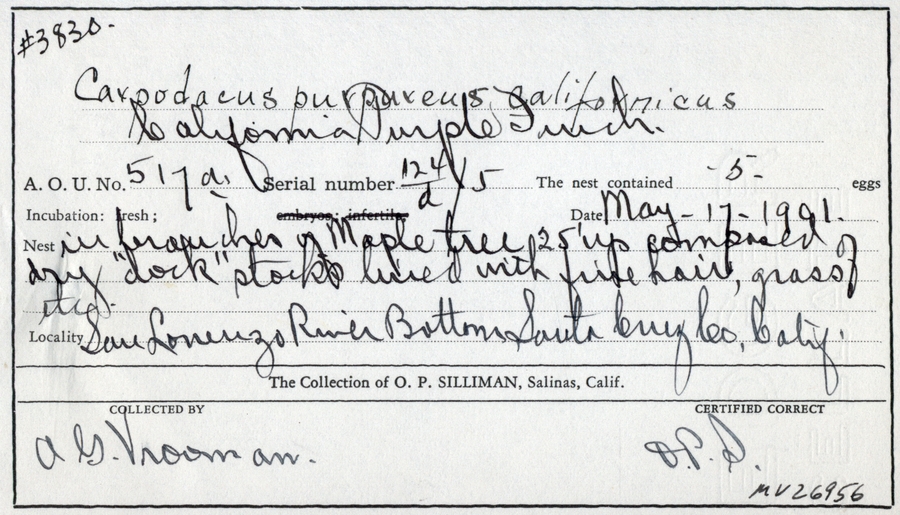 #3830-
Carpodacus purpureus californicus
California Purple Finch.
A. O. U. No. 517a. Serial number 124/d /5 The nest contained -5- eggs
Incubation: fresh; embryos; infertile Date May-17-1901.
Nest in branches of Maple tree 25' up composed of
dry "dock" stocks lined with fine hair, grass
etc.
Locality San Lorenzo River Bottom Santa Cruz Co, Calif.
The Collection of O. P. SILLIMAN, Salinas, Calif.
COLLECTED BY CERTIFIED CORRECT
A G. Vrooman. O.P.S.
MV26956